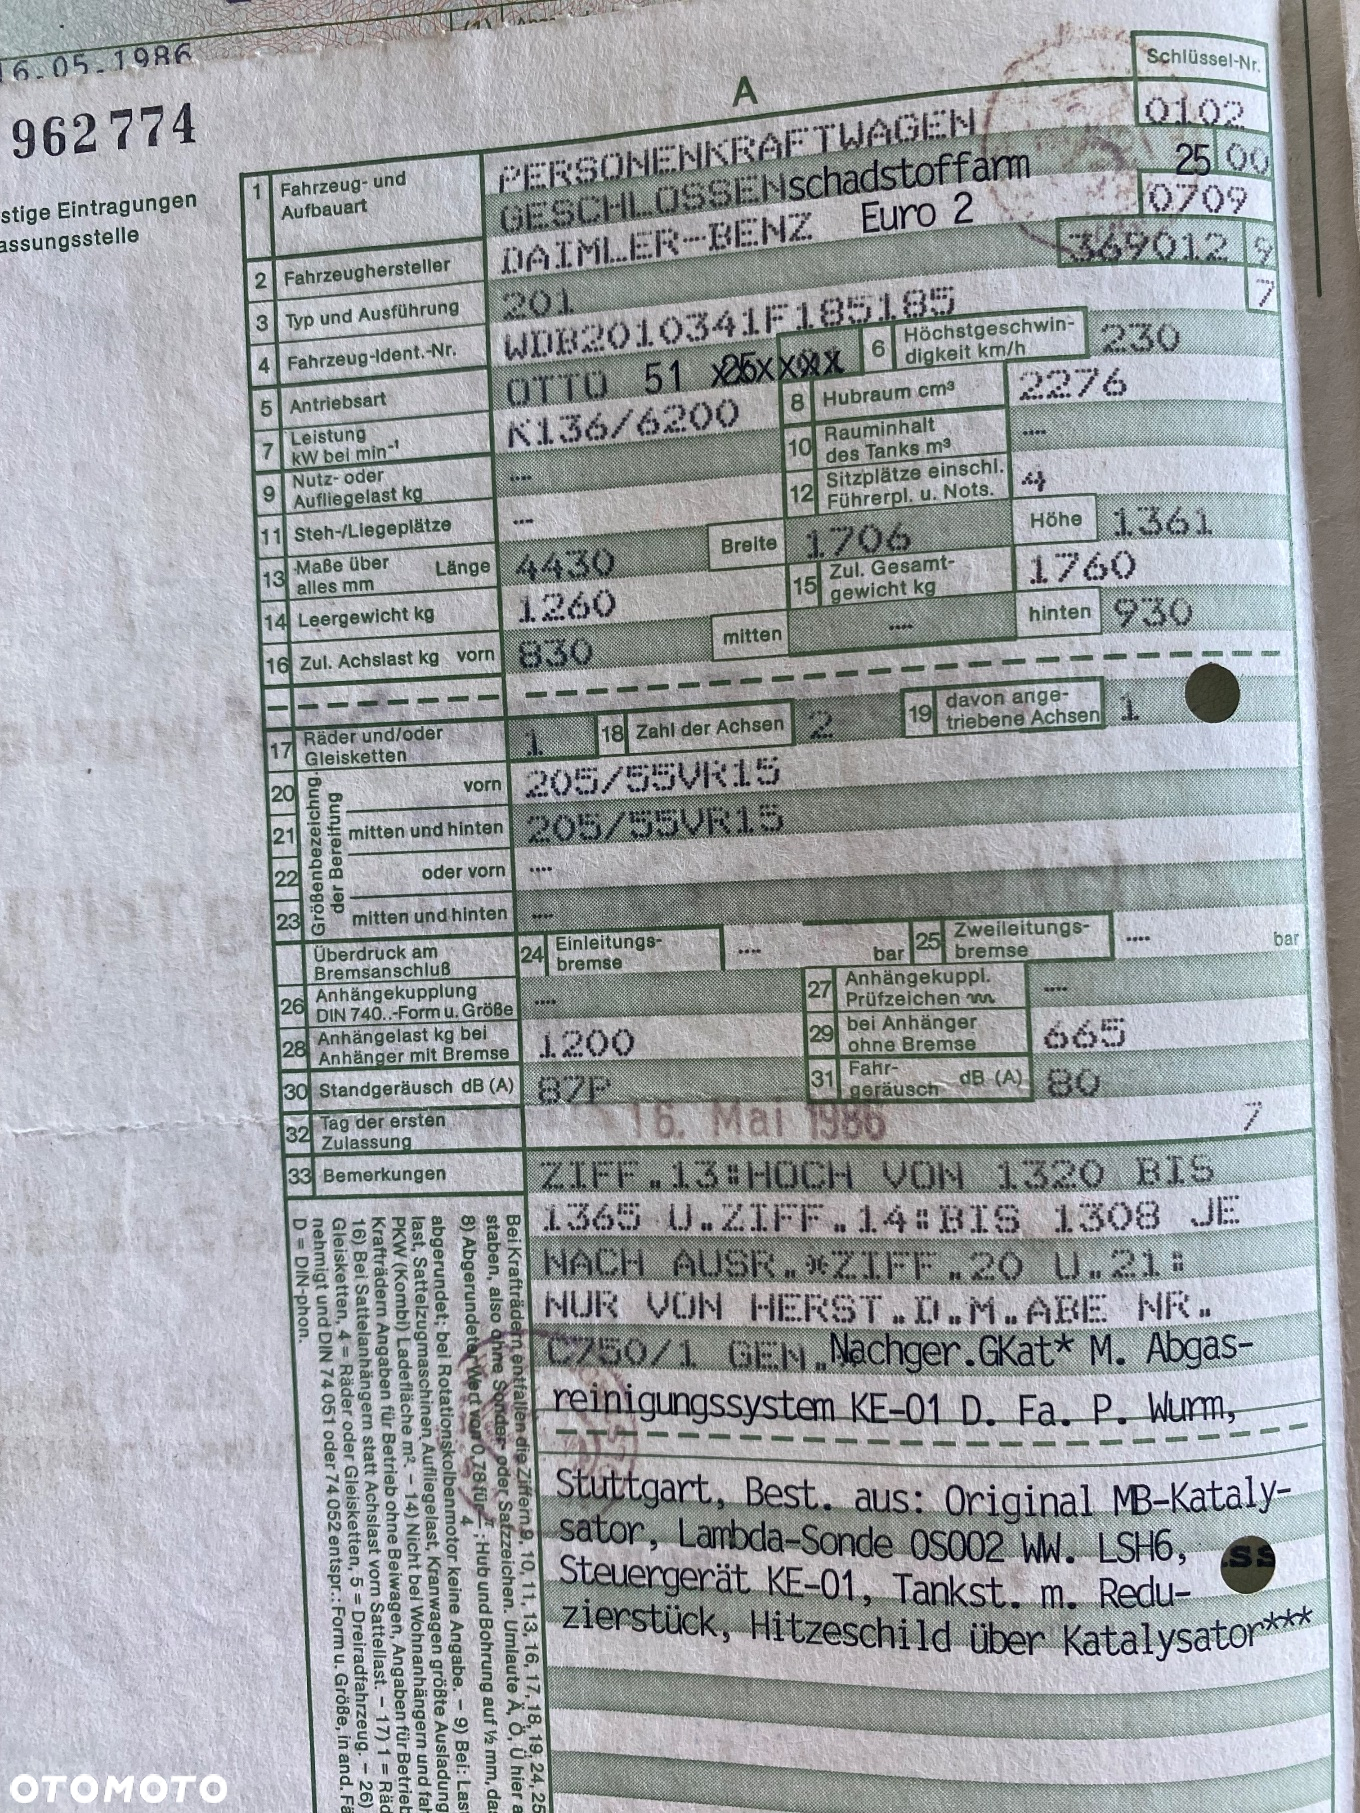 16.05.1986
962774
stige Eintragungen
assungsstelle
A
Schlüssel-Nr.
1 Fahrzeug- und Aufbauart PERSONENKRAFTWAGEN 0102
GESCHLOSSEN schadstoffarm 25 00
2 Fahrzeughersteller DAIMLER-BENZ Euro 2 0709
3 Typ und Ausführung 201 369012 9
4 Fahrzeug-Ident.-Nr. WDB2010341F185185 7
5 Antriebsart OTTO 51 6 Höchstgeschwindigkeit km/h 230
7 Leistung kW bei min⁻¹ K136/6200 8 Hubraum cm³ 2276
9 Nutz- oder Aufliegelast kg ---- 10 Rauminhalt des Tanks m³ ----
11 Steh-/Liegeplätze --- 12 Sitzplätze einschl. Führerpl. u. Nots. 4
13 Maße über alles mm Länge 4430 Breite 1706 Höhe 1361
14 Leergewicht kg 1260 15 Zul. Gesamt-gewicht kg 1760
16 Zul. Achslast kg vorn 830 mitten ---- hinten 930
17 Räder und/oder Gleisketten 1 18 Zahl der Achsen 2 19 davon ange-triebene Achsen 1
Größenbezeichng der Bereifung
20 vorn 205/55VR15
21 mitten und hinten 205/55VR15
22 oder vorn ----
23 mitten und hinten ----
Überdruck am Bremsanschluß 24 Einleitungs-bremse ---- bar 25 Zweileitungs-bremse ---- bar
26 Anhängekupplung DIN 740..-Form u. Größe ---- 27 Anhängekuppl. Prüfzeichen ----
28 Anhängelast kg bei Anhänger mit Bremse 1200 29 bei Anhänger ohne Bremse 665
30 Standgeräusch dB (A) 87P 31 Fahr-geräusch dB (A) 80
32 Tag der ersten Zulassung 16. Mai 1986 7
33 Bemerkungen ZIFF.13:HOCH VON 1320 BIS
1365 U.ZIFF.14:BIS 1308 JE
NACH AUSR.*ZIFF.20 U.21:
NUR VON HERST.D.M.ABE NR.
C750/1 GEN. Nachger.GKat* M. Abgas-
reinigungssystem KE-01 D. Fa. P. Wurm,
Stuttgart, Best. aus: Original MB-Kataly-
sator, Lambda-Sonde OS002 WW. LSH6,
Steuergerät KE-01, Tankst. m. Redu-
zierstück, Hitzeschild über Katalysator***
Bei Krafträdern entfallen die Ziffern 9, 10, 11, 13, 16, 17, 18, 19, 24, 25
staben, also ohne Sonder- oder Satzzeichen. Umlaute Ä, Ö, Ü hier a
8) Abgerundeter Wert von 0,78 für π/4; Hub und Bohrung auf ½ mm, da
abgerundet; bei Rotationskolbenmotor keine Angabe. – 9) Bei: Las
last, Sattelzugmaschinen Aufliegelast, Kranwagen größte Ausladung
PKW (Kombi) Ladefläche m². – 14) Nicht bei Wohnanhängern und fah
Krafträdern Angaben für Betrieb ohne Beiwagen, Angaben für Betrieb
16) Bei Sattelanhängern statt Achslast vorn Sattellast. – 17) 1 = Räd
Gleisketten, 4 = Räder oder Gleisketten, 5 = Dreiradfahrzeug. – 26)
nehmigt und DIN 74 051 oder 74 052 entspr.: Form u. Größe, in and. Fä
D = DIN-phon.
OTOMOTO